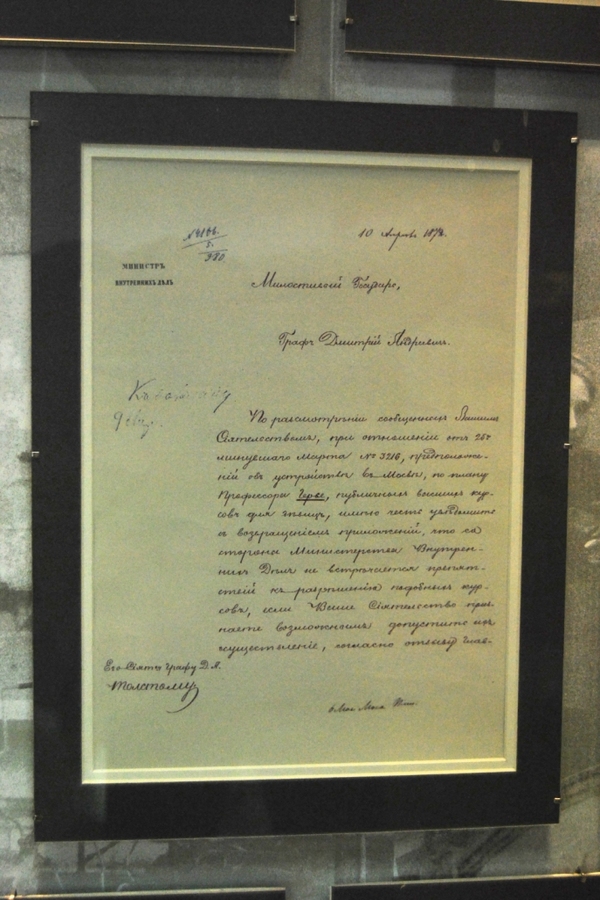 10 Апреля 1872.
МИНИСТРЪ
ВНУТРЕННИХЪ ДѢЛЪ
Милостивый Государь,
Графъ Дмитрій Андреевичъ.
По разсмотрѣніи сообщенныхъ Вашимъ
Сіятельствомъ, при отношеніи отъ 28го
минувшаго Марта № 3216, предположе-
ній объ устройствѣ въ Москвѣ, по плану
Профессора Герье, публичныхъ высшихъ кур-
совъ для женщ., имѣю честь увѣдомить
съ возвращеніемъ приложеній, что со
стороны Министерства Внутрен-
нихъ Дѣлъ не встрѣчается препят-
ствій къ разрѣшенію подобныхъ кур-
совъ, если Ваше Сіятельство приз-
наете возможнымъ допустить ихъ
осуществленіе, согласно отзыву
Его Сіят. Графу Д. А.
Толстому